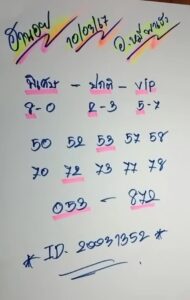 ฮานอย 10/03/67
พิเศษ - ปกติ - vip
8-0 2-3 5-7
50 52 53 57 58
70 72 73 77 78
053 - 872
* ID. 20031352 *